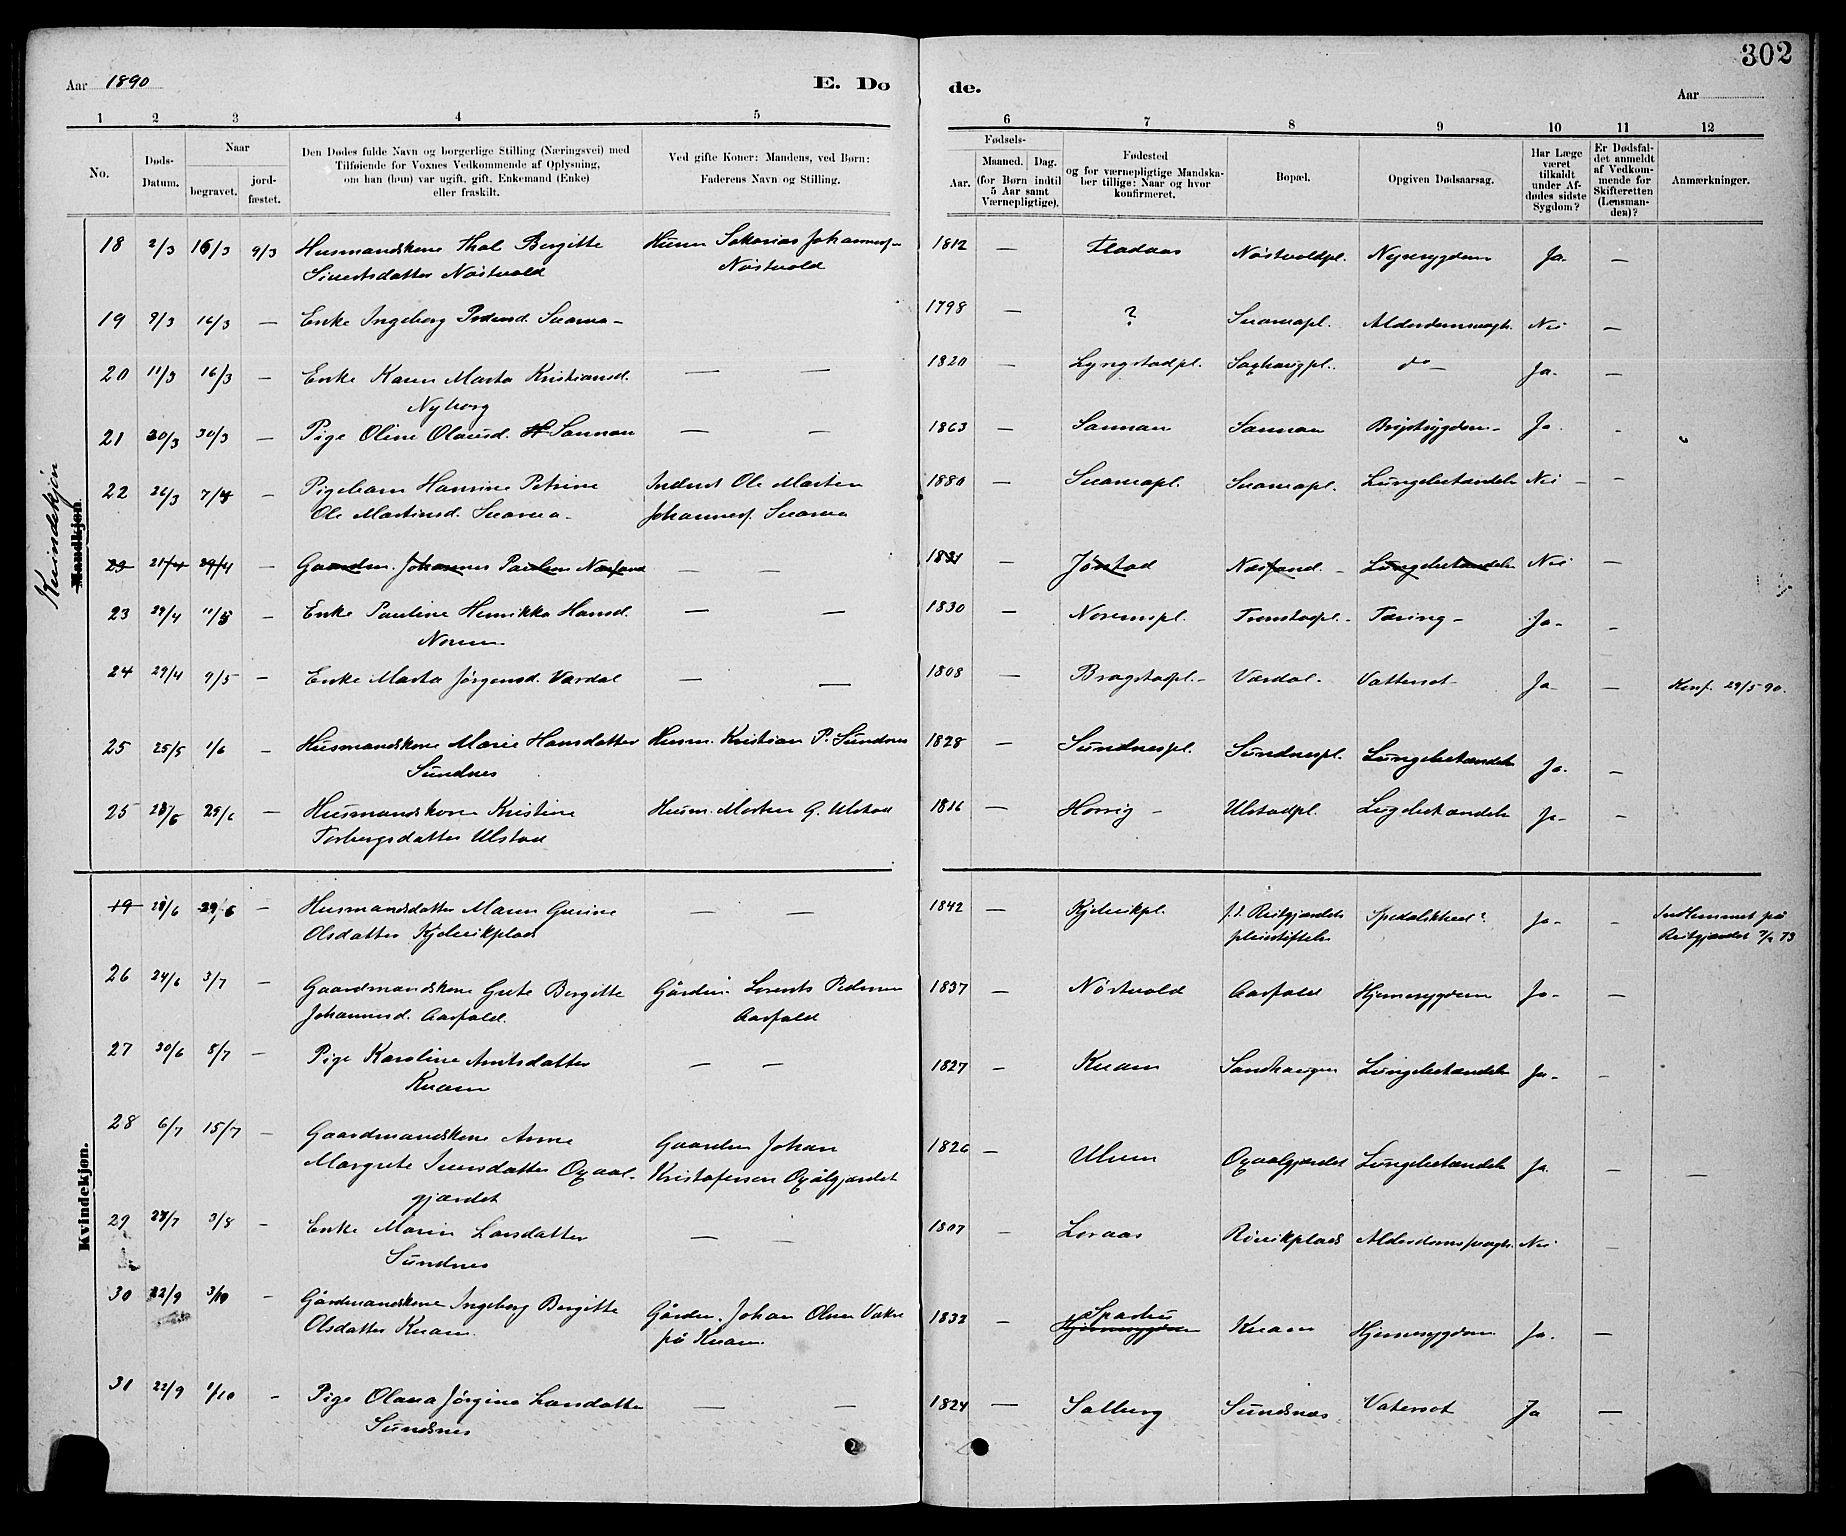 302
Aar 1890 E. Dø de. Aar
1 2 3 4 5 6 7 8 9 10 11 12
No.
Døds-Datum.
Naar
begravet.
jord-fæstet.
Den Dødes fulde Navn og borgerlige Stilling (Næringsvei) med
Tilføiende for Voxnes Vedkommende af Oplysning,
om han (hun) var ugift, gift, Enkemand (Enke)
eller fraskilt.
Ved gifte Koner: Mandens, ved Børn:
Faderens Navn og Stilling.
Fødsels-
Aar.
Maaned. Dag.
(for Børn indtil
5 Aar samt
Værnepligtige).
Fødested
og for værnepligtige Mandska-
ber tillige: Naar og hvor
konfirmeret.
Bopæl.
Opgiven Dødsaarsag.
Har Læge
været
tilkaldt
under Af-
dødes sidste
Sygdom?
Er Dødsfal-
det anmeldt
af Vedkom-
mende for
Skifteretten
(Lensman-
den)?
Anmærkninger.
Kvindekjøn
Mandkjøn
18 2/3 16/3 9/3 Husmandskone Beret Birgitte Husm Sakarias Johannes- 1812 — Nøstvoldpl. Nyresygdom Ja. —
Sivertsdatter Nøstvold Nøstvold
19 9/3 16/3 — Enke Ingeborg Pedersd. Snarua — 1798 — ? Snaruapl. Alderdomssvagh. Nei —
20 11/3 16/3 — Enke Karen Marta Kristiansd. — — 1820 — Lyngstadpl. Saghaugpl. do — Ja. —
Nyborg
21 20/3 30/3 — Pige Oline Olausd. Sannan — — 1863 — Sannan Sannan Brystsygdom — Ja. -
22 26/3 7/4 — Pigebarn Hansine Petrine Inderst Ole Martin 1880 — Snaruapl. Snaruapl. Lungebetændelse Nei — —
Ole Martinsd. Snarua — Johanness. Snarua
23 21/4 29/4 Gaardm. Johannes Paulsen Næssand — — 1831 Jørstad Næssand. — Lungebetændelse Nei —
23 29/4 11/5 — Enke Pauline Henrikka Hansd. — — 1830 — Noremspl. Tronstadpl. — Tæring — Ja — —
Norem
24 29/4 9/5 — Enke Marta Jørgensd. Værdal — — 1808 — Bragstadpl. — Værdal. Vattersot — Ja — — 29/5 90.
25 25/5 1/6 — Husmandskone Marie Hansdatter Husm. Kristian P. Sundnes 1828 — Sundnespl. Sundnespl. Lungebetændelse Ja. —
Sundnes
25 28/6 29/6 — Husmandskone Kristine Husm. Morten G. Ulstad 1816 — Ulstadpl. Lugebetændelse Ja — —
Torbergsdatter Ulstad
Kvindekjøn.
19 28/6 29/6 — Husmandsdatter Maren Gurine — — 1842 — Kjelvikpl. f. t. Reitgjærdets Spedalskhed? Ja — — Indkommet på
Olsdatter Kjelvikplads pleiestiftelse Reitgjærdet 73
26 24/6 3/7 — Gaardmandskone Grete Birgitte Gårdm. Lorents Pedersen 1837 — Nøstvold Aasfald Hjernesygdom Ja — —
Johannesd. Aasfald. Aasfald
27 30/6 8/7 — Pige Karoline Arntsdatter — — 1827 — Kvam Sandhaugen Lungebetændelse Ja — —
Kvam
28 6/7 15/7 — Gaardmandskone Anne Gaardm Johan 1826 — Ulven Oxaalgjærdet Lungebetændelse Ja. — —
Margrete Iversdatter Oxaal- Kristofersen Oxålgjærdet
gjærdet
29 28/7 3/8 — Enke Maria Larsdatter — — 1807 — Leraas Røvikplads Alderdomssvagh. Nei —
Sundnes
30 22/9 3/10 — Gårdmandskone Ingeborg Birgitte Gårdm. Johan Olsen Vakre 1832 — Sparhus Kvam Hjernesygdom Ja. —
Olsdatter Kvam. på Kvam. Hjernesygdom
31 22/9 1/10 — Pige Olava Jørgine Larsdatter — — 1824 — Salberg Sundsnæs. Vatersot Ja —
Sundsnes